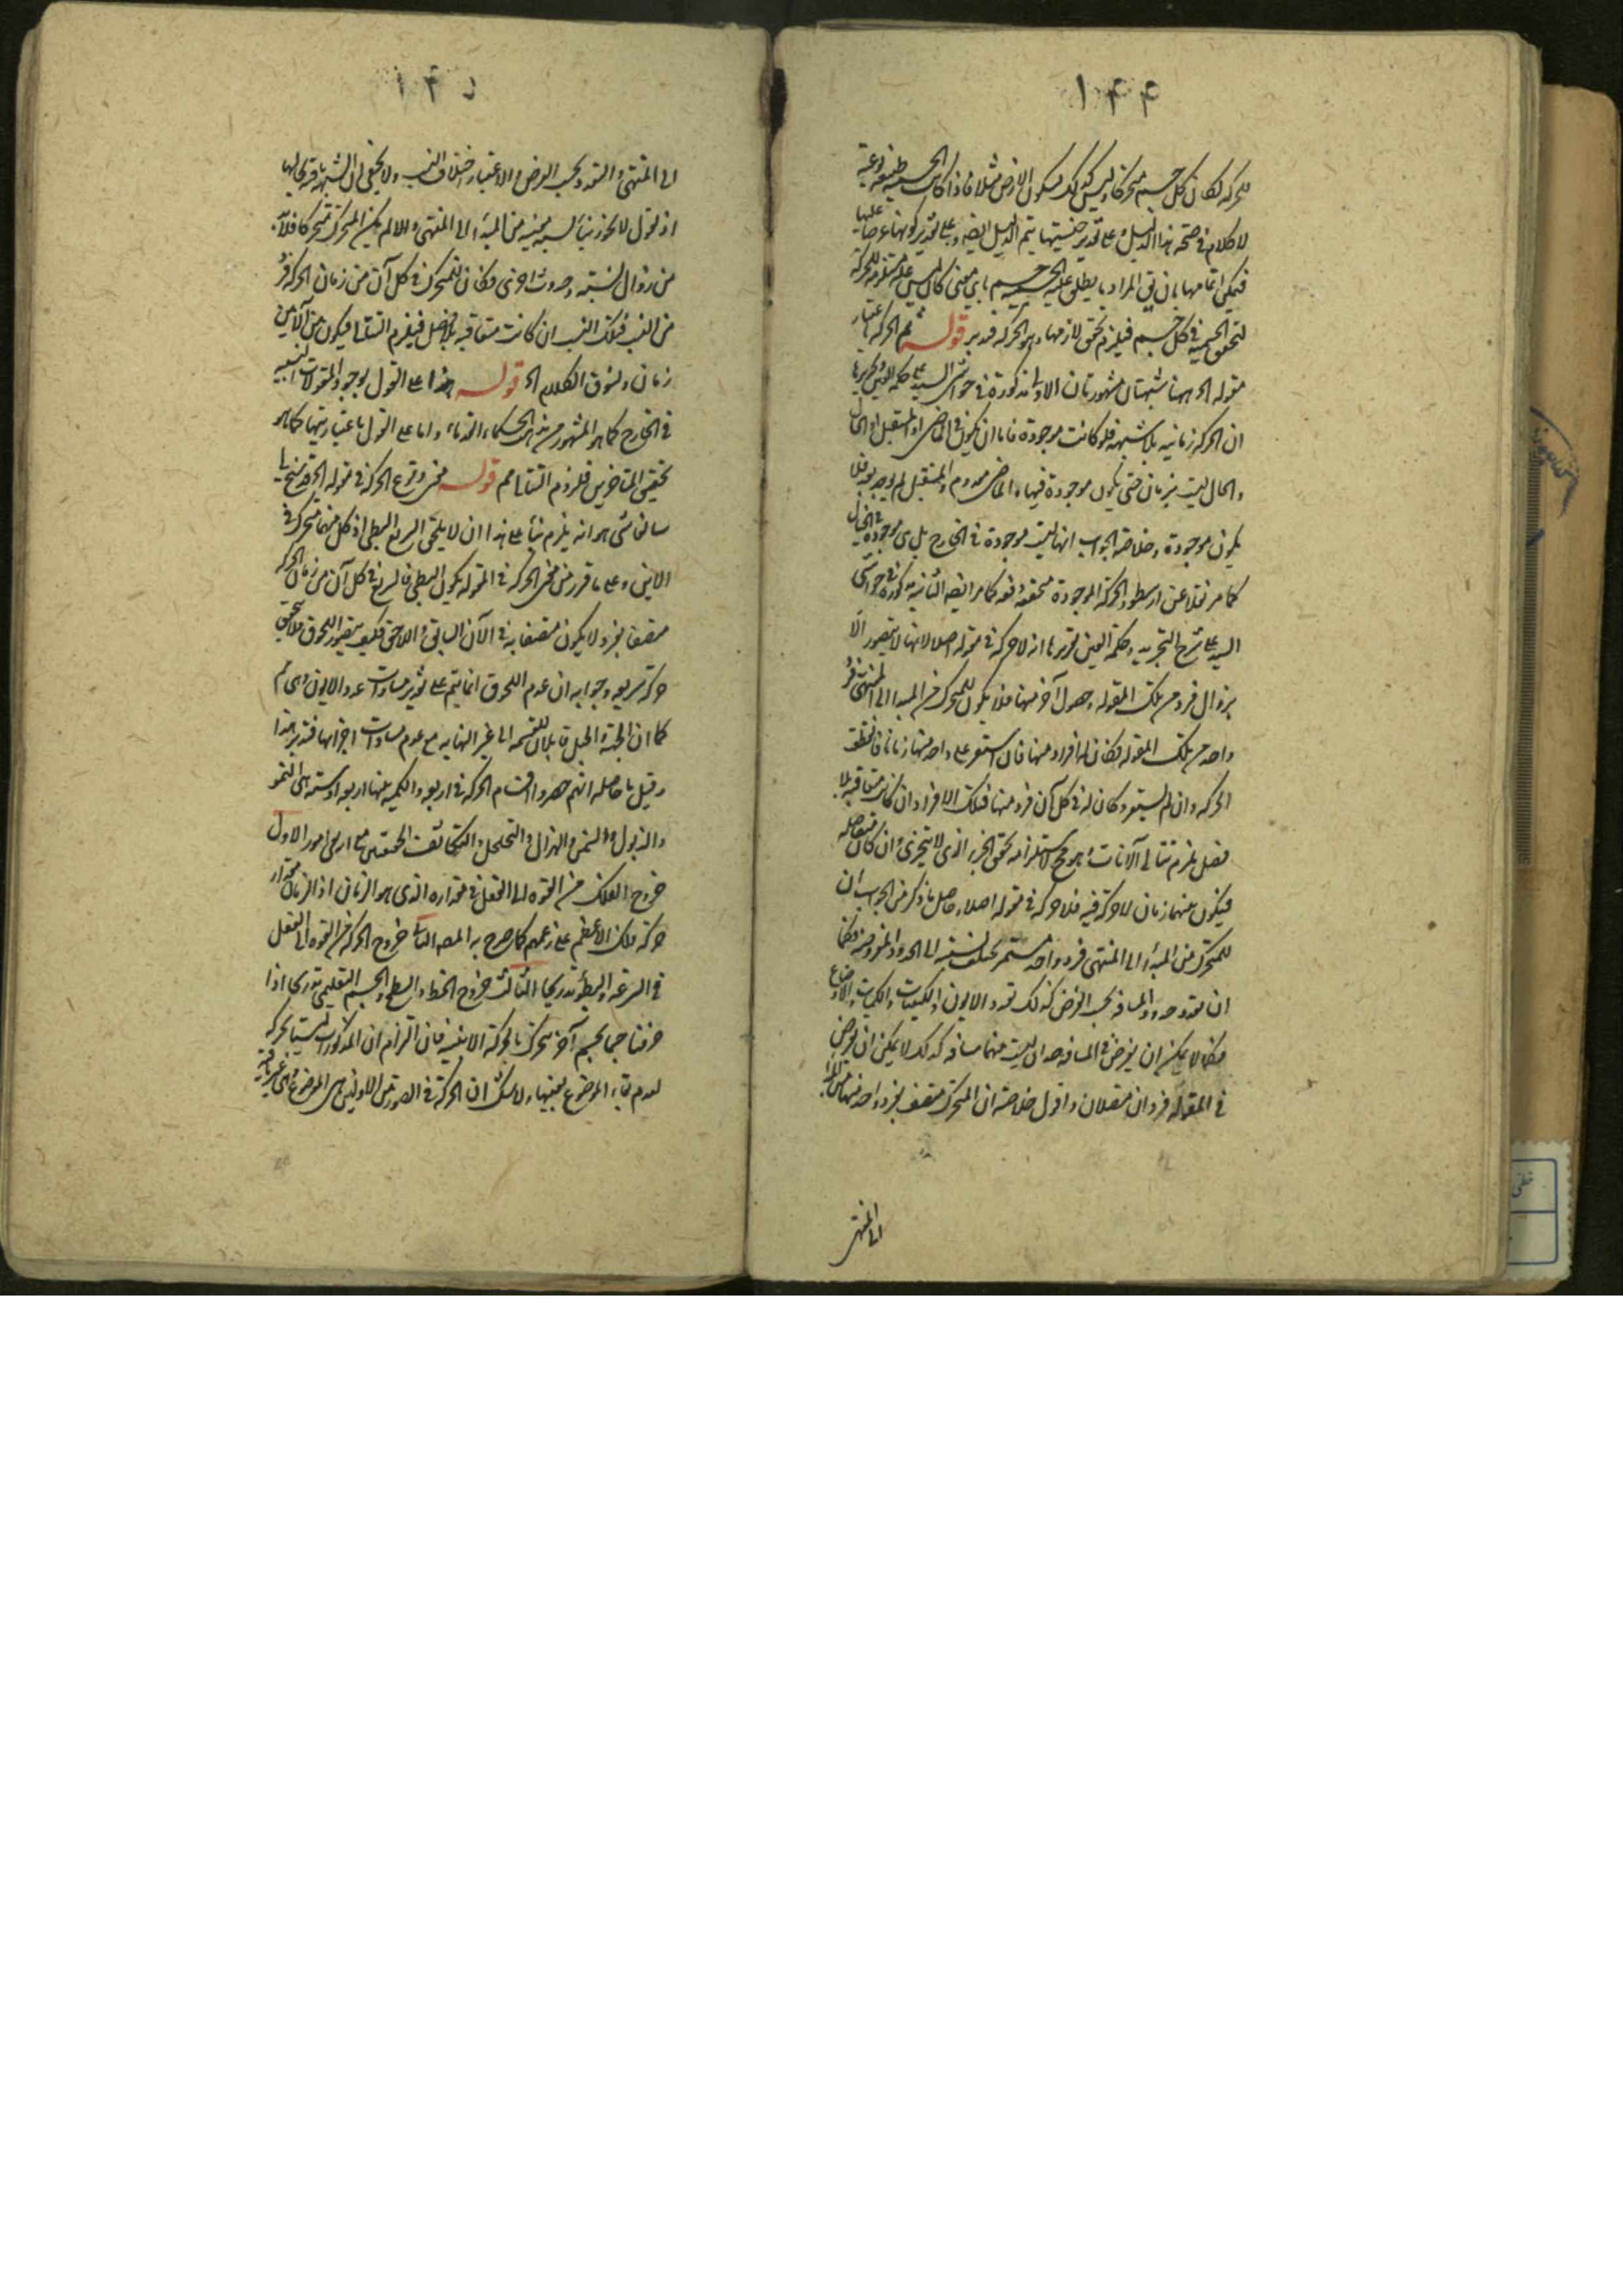 ١٩٩
للحركة لكان كل جسم متحركا وليس كذلك لسكون الارض مثلا فاذا كانت الجسمية طبيعة نوعية
لا كلام في صحة هذا الدليل وعلى تقدير جنسيتها يتم الدليل ايضا وعلى تقدير كونها عرضا عليها
فيمكن اتمامها بان يق المراد ما يطلق عليه الجسم باى معنى كان ليس علة مستلزمة للحركة
لتحقق الجسمية في كل جسم فيلزم تحقق لازمها وهو الحركة فتدبر قوله ثم الحركة باعتبار
مقولة الخ ههنا شبهتان مشهورتان الاولى مذكورة في حواشى السيد على حكمة العين تحريرها
ان الحركة زمانية بلا شبهة فلو كانت موجودة فاما ان تكون في الماضى او المستقبل او الحال
والحال ليست بزمان حتى يكون موجودة فيها والماضى معدوم والمستقبل لم يوجد بعد فلا
يكون موجودة وخلاصة الجواب انها ليست موجودة في الخارج بل هى موجودة في الخيال
كما مر نقلا عن ارسطو والحركة الموجودة متحققة فيه كما مر ايضا الثانية مذكورة في حواشى
السيد على شرح التجريد وحكمة العين تقريرها انه لا حركة في مقولة اصلا لانها لا يتصور الا
بزوال فرد من تلك المقولة وحصول آخر منها فلا يكون للمتحرك من المبدا الى المنتهى فرد
واحد من تلك المقولة فكان له افراد منها فان استقر على واحد منها زمانا فانقطعت
الحركة وان لم يستقر وكان له في كل آن فرد منها فتلك الافراد ان كانت متعاقبة بلا
فصل يلزم تتالى الآنات وهو مح لاستلزامه تحقق الجزء الذى لا يتجزى وان كان متفاصلة
فيكون بينهما زمان لا حركة فيه فلا حركة في مقولة اصلا وحاصل ما ذكر من الجواب ان
للمتحرك من المبدا الى المنتهى فرد واحد مستمر يختلف نسبته الى الحدود المفروضة فكما
ان تعدد حدود المسافة بحسب الفرض كذلك تعدد الايون والكيفيات والكميات والاوضاع
فكما لا يمكن ان يفرض في المسافة حدان ليست بينهما مسافة كذلك لا يمكن ان يفرض
في المقولة فردان متصلان واقول خلاصته ان المتحرك متصف بفرد واحد منها من المبدا
الى المنتهى
١٩
الى المنتهى والتعدد بحسب الفرض والاعتبار اختلاف النسب ولا يخفى ان الشبهة باقية بحالها
اذ نقول لا يجوز بقاء نسبة معينة من المبدا الى المنتهى والا لم يكن المتحرك متحركا فلا بد
من زوال نسبة وحدوث اخرى فكان للمتحرك في كل آن من زمان الحركة فرد
من النسب فتلك النسب ان كانت متعاقبة بلا فصل فيلزم التتالى فيكون بين الآنين
زمان ونسوق الكلام الخ قوله هذا على القول بوجود المقولات النسبية
في الخارج كما هو المشهور من مذاهب الحكماء القدماء واما على القول باعتباريتها كما هو
تحقيق المتاخرين فلزوم التتالى مم قوله معنى وقوع الحركة في مقولة الخ
هو انه يلزم بناء على هذا ان لا يلحق السريع البطى اذ كل منهما متحرك في
الاين وعلى ما قرر من معنى الحركة في المقولة يكون البطى في كل آن من زمان الحركة
متصفا بفرد لا يكون متصفا به في الآن السابق واللاحق فكيف يتصور اللحوق
حركة سريعة وجوابه ان عدم اللحوق انما يتم على تقدير مساوات عدد الايون وهى مم
كما ان الحبة والجبل قابلان للقسمة الى غير النهاية مع عدم مساوات اجزائها فتدبر هذا
وقيل ما حاصله انهم حصروا اقسام الحركة في اربع والكمية منها اربعة او ستة هى النمو
والذبول والسمن والهزال والتخلخل والتكاثف الحقيقيين امور الاول
خروج الفلك من القوة الى الفعل في مقداره الذى هو الزمان اذ الزمان مقدار
حركة فلك الاعظم على زعمهم كما صرح به المصه الثانى خروج الحركة من القوة الى الفعل
في السرعة والبطؤ تدريجا الثالث خروج الخط والسطح والجسم التعليمى تدريجا اذا
فرضنا جسما بجسم آخر متحرك بالحركة الاينية فان التزام ان المذكورات ليست بحركة
لعدم بقاء الموضوع بعينها ولا شك ان الحركة في الصورتين الاوليين هى الموضوع وهى غير باقية